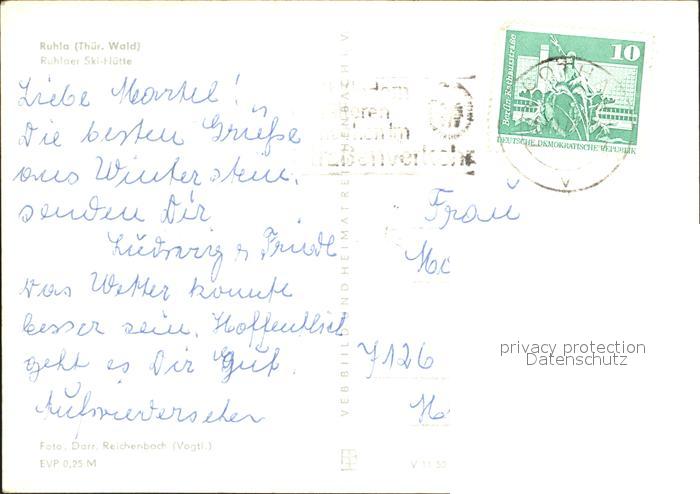 Ruhla (Thür. Wald)
Ruhlaer Ski-Hütte
Liebe Martel!
Die besten Grüße
aus Winterstein,
senden Dir
Ludwig u Friedl
Das Wetter könnte
besser sein. Hoffentlich
geht es Dir Gut.
Aufwiedersehen
Foto: Darr, Reichenbach (Vogtl.)
EVP 0,25 M
VEB BILD UND HEIMAT REICHENBACH I. V.
V 11 50
10
Berlin, Rathausstraße
DEUTSCHE DEMOKRATISCHE REPUBLIK
Frau
7126
privacy protection
Datenschutz